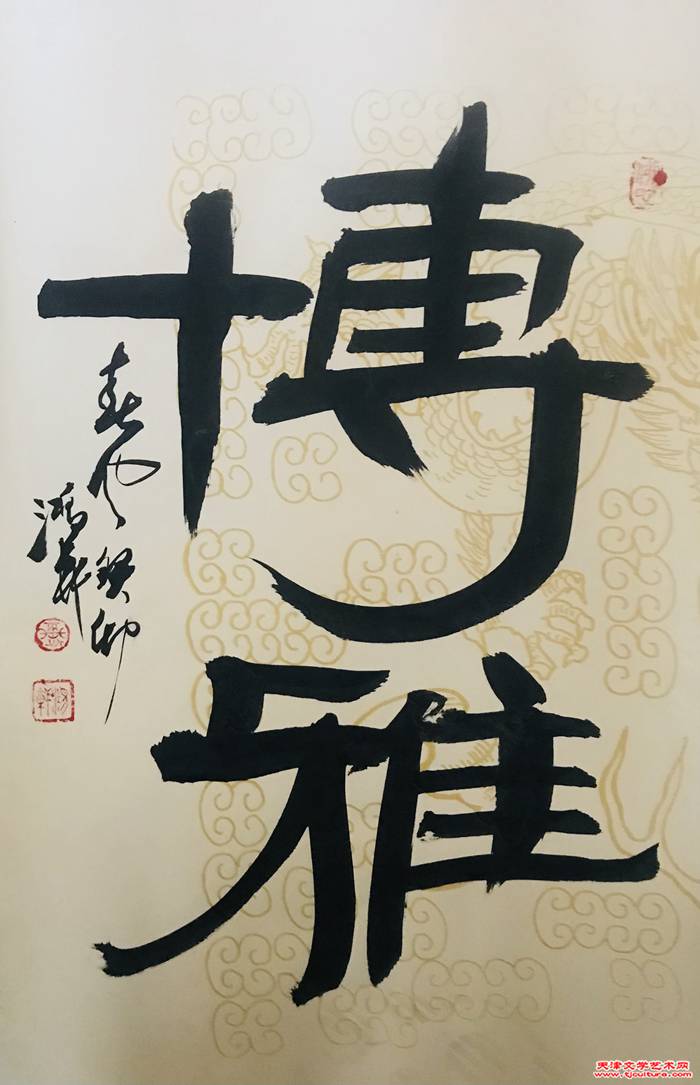 博雅
春风癸卯
鸿
天津文学艺术网
www.tjcultura.com